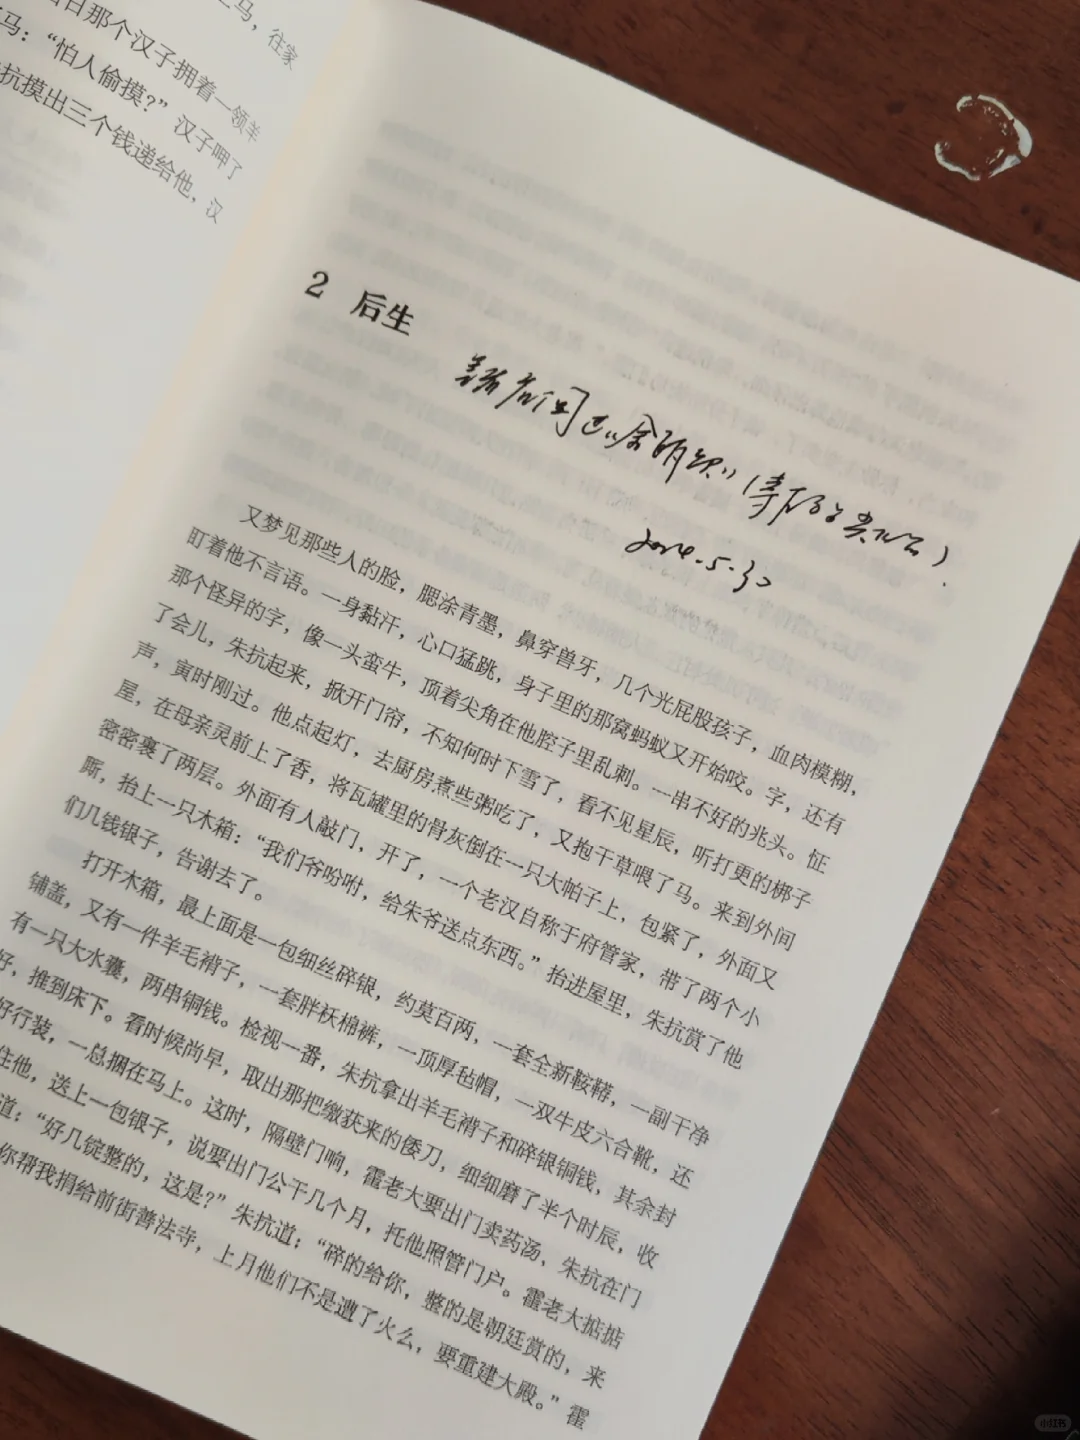 马，往家
日那个汉子拥着一领羊
马：“怕人偷摸？”汉子呷了
抗摸出三个钱递给他，汉
2 后生
2024.5.30
又梦见那些人的脸，腮涂青墨，鼻穿兽牙，几个光屁股孩子，血肉模糊，
盯着他不言语。一身黏汗，心口猛跳，身子里的那窝蚂蚁又开始咬。字，还有
那个怪异的字，像一头蛮牛，顶着尖角在他腔子里乱刺。一串不好的兆头。怔
了会儿，朱抗起来，掀开门帘，不知何时下雪了，看不见星辰，听打更的梆子
声，寅时刚过。他点起灯，去厨房煮些粥吃了，又抱干草喂了马。来到外间
屋，在母亲灵前上了香，将瓦罐里的骨灰倒在一只大帕子上，包紧了，外面又
密密裹了两层。外面有人敲门，开了，一个老汉自称于府管家，带了两个小
厮，抬上一只木箱：“我们爷吩咐，给朱爷送点东西。”抬进屋里，朱抗赏了他
们几钱银子，告谢去了。
打开木箱，最上面是一包细丝碎银，约莫百两，一套全新鞍鞯，一副干净
铺盖，又有一件羊毛褙子，一套胖袄棉裤，一顶厚毡帽，一双牛皮六合靴，还
有一只大水囊，两串铜钱。检视一番，朱抗拿出羊毛褙子和碎银铜钱，其余封
好，推到床下。看时候尚早，取出那把缴获来的倭刀，细细磨了半个时辰，收
好行装，一总捆在马上。这时，隔壁门响，霍老大要出门卖药汤，朱抗在门
住他，送上一包银子，说要出门公干几个月，托他照管门户。霍老大掂掂
道：“好几锭整的，这是？”朱抗道：“碎的给你，整的是朝廷赏的，来
你帮我捐给前街善法寺，上月他们不是遭了火么，要重建大殿。”霍
小红书